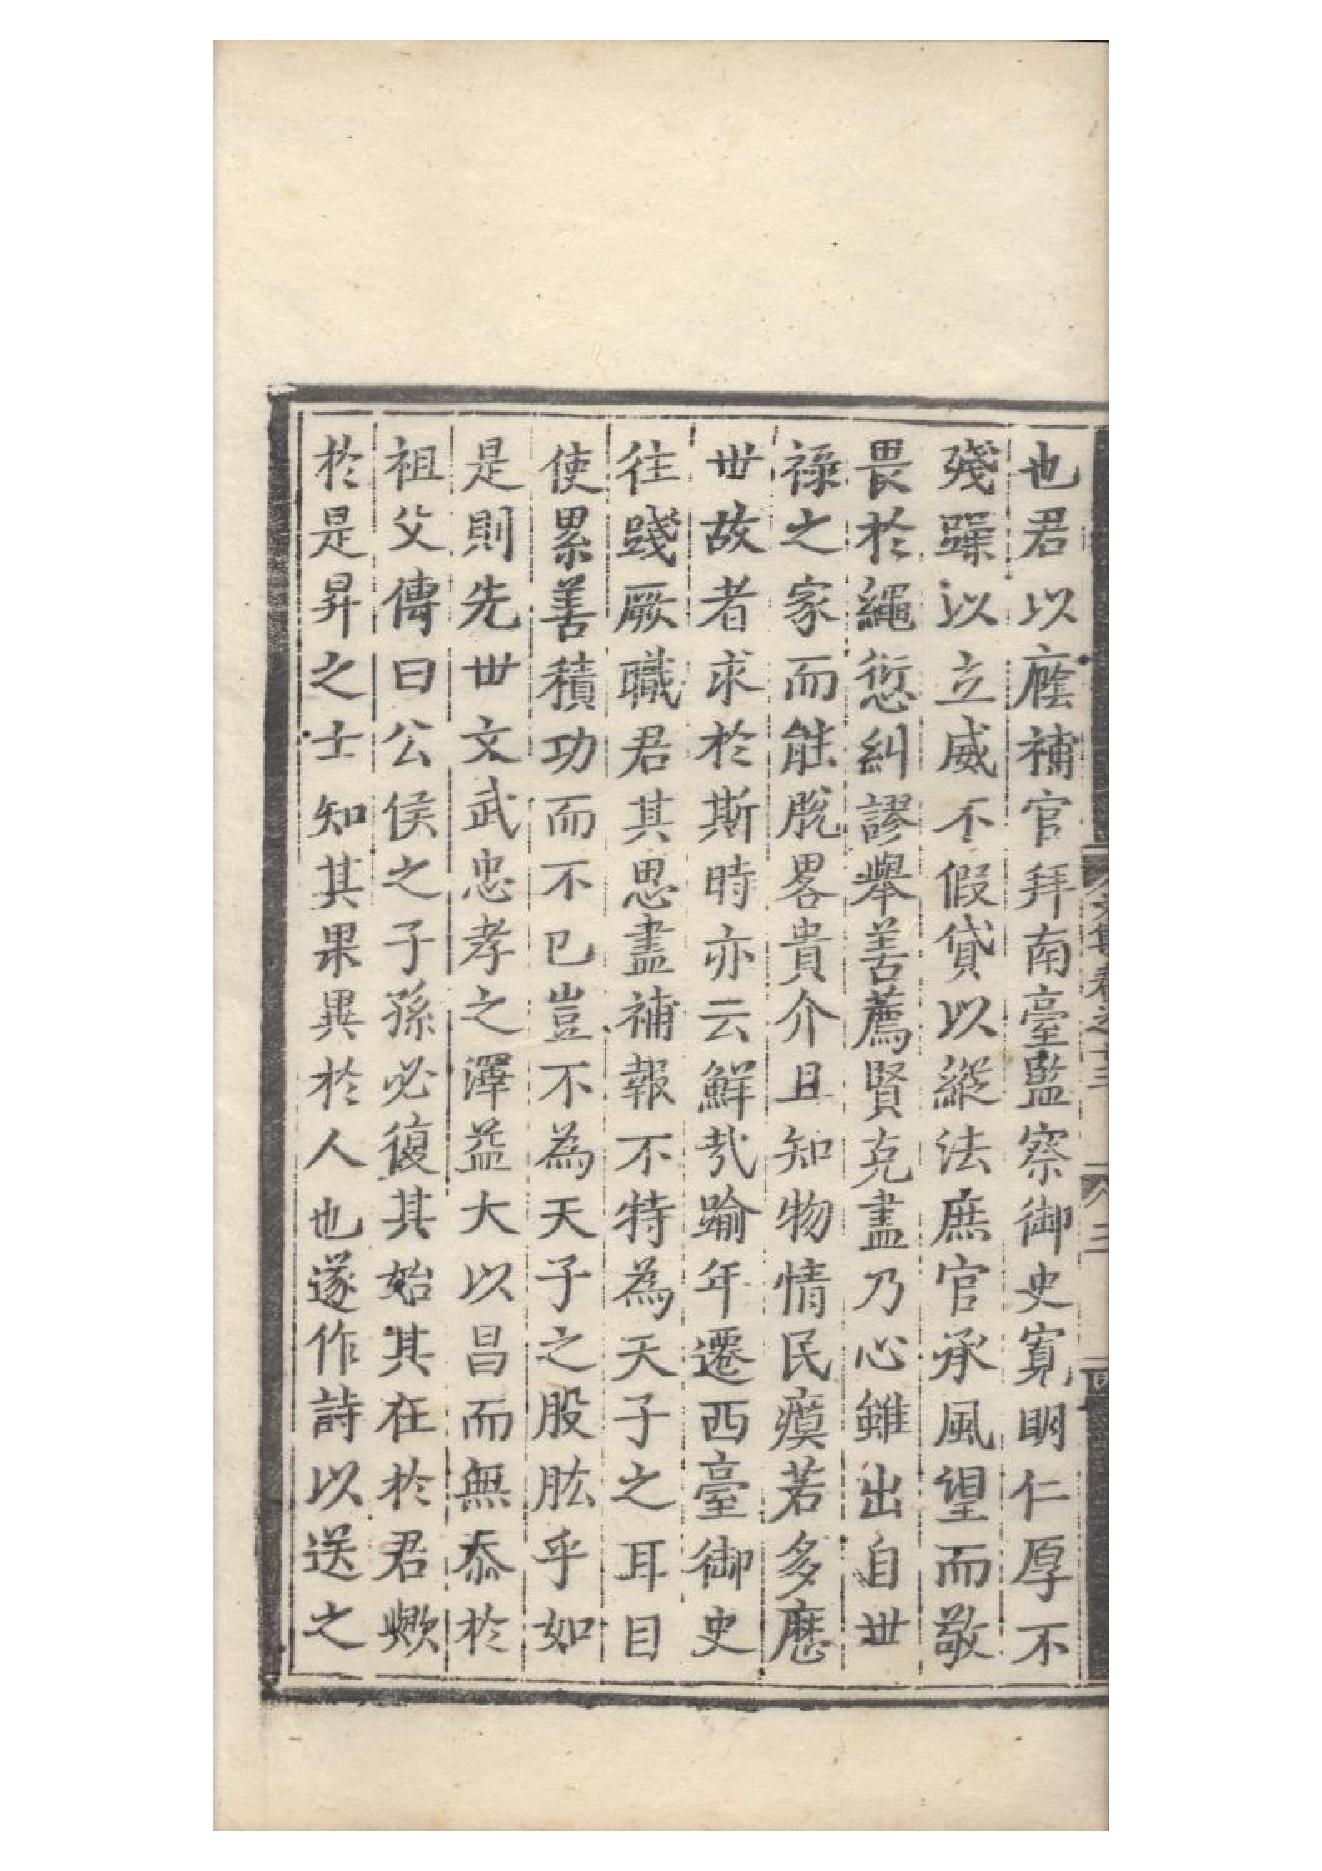 也君以廕補官拜南臺監察御史寬明仁厚不
殘躁以立威不假貸以縱法庶官承風望而敬
畏於繩愆糾謬舉善薦賢克盡乃心雖出自世
祿之家而能脫畧貴介且知物情民瘼若多歷
世故者求於斯時亦云鮮㢤踰年遷西臺御史
往踐厥職君其思盡補報不特為天子之耳目
使累善積功而不已豈不為天子之股肱乎如
是則先世文武忠孝之澤益大以昌而無忝於
祖父傳曰公侯之子孫必復其始其在於君歟
於是昇之士知其果異於人也遂作詩以送之